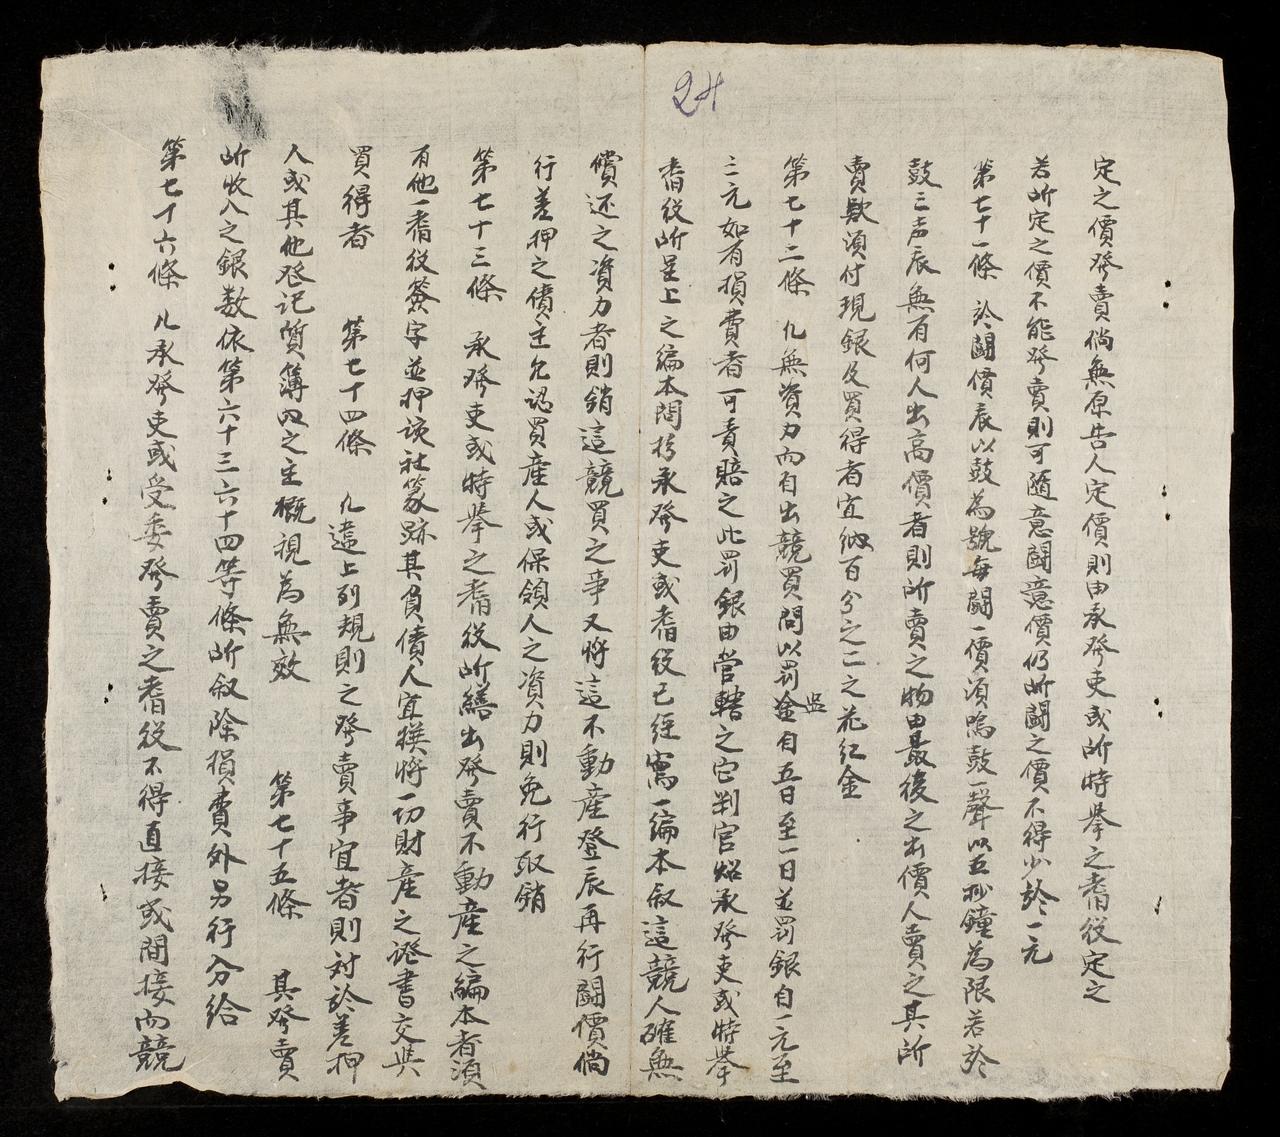 24
定之價發賣倘無原告人定價則由承發吏或所特举之耆役定之
若所定之價不能發賣則可隨意鬪意價仍所鬪之價不得少於一元
第七十一條 於鬪價辰以鼓為號每鬪一價須鳴鼓一聲以五抄鐘為限若於
鼓三声辰無有何人出高價者則所賣之物由最後之出價人賣之其所
賣欵須付現銀及買得者宜納百分之二之花紅金
第七十二條 凡無資力而自出競買問以罰监金自五日至一日並罰銀自一元至
三元如有損費者可責賠之此罰銀由管轄之宅判官炤承發吏或特举
耆役所呈上之編本問拟承發吏或耆役已經寫一編本叙這競人確無
償还之資力者則銷這競買之事又将這不動產登辰再行鬪價倘
行差押之債主允認買產人或保領人之資力則免行取銷
第七十三條 承發吏或特举之耆役所繕出發賣不動產之編本者須
有他一耆役簽字並押该社篆跡其負債人宜撰将一切財產之證書交與
買得者 第七十四條 凡違上列規則之發賣事宜者則対於差押
人或其他登记質簿内之主概視為無效 第七十五條 其發賣
所收入之銀数依第六十三六十四等條所叙除損費外另行分給
第七十六條 凡承發吏或受委發賣之耆役不得直接或間接向競